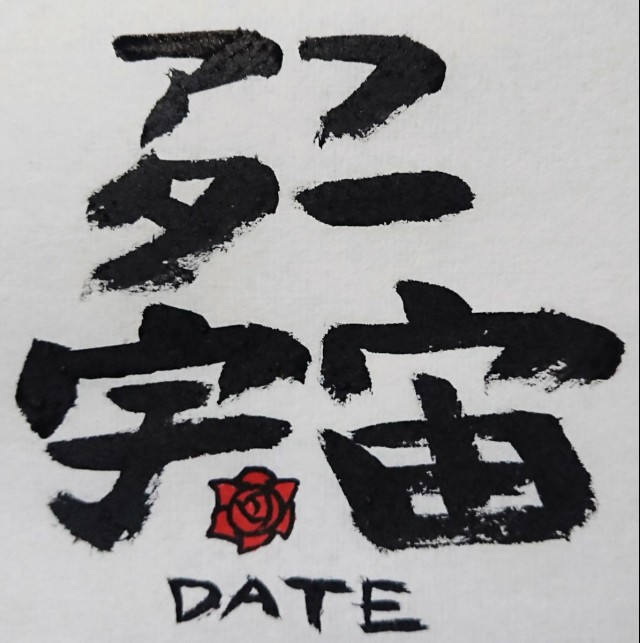 アフ
ター
宇宙
DATE